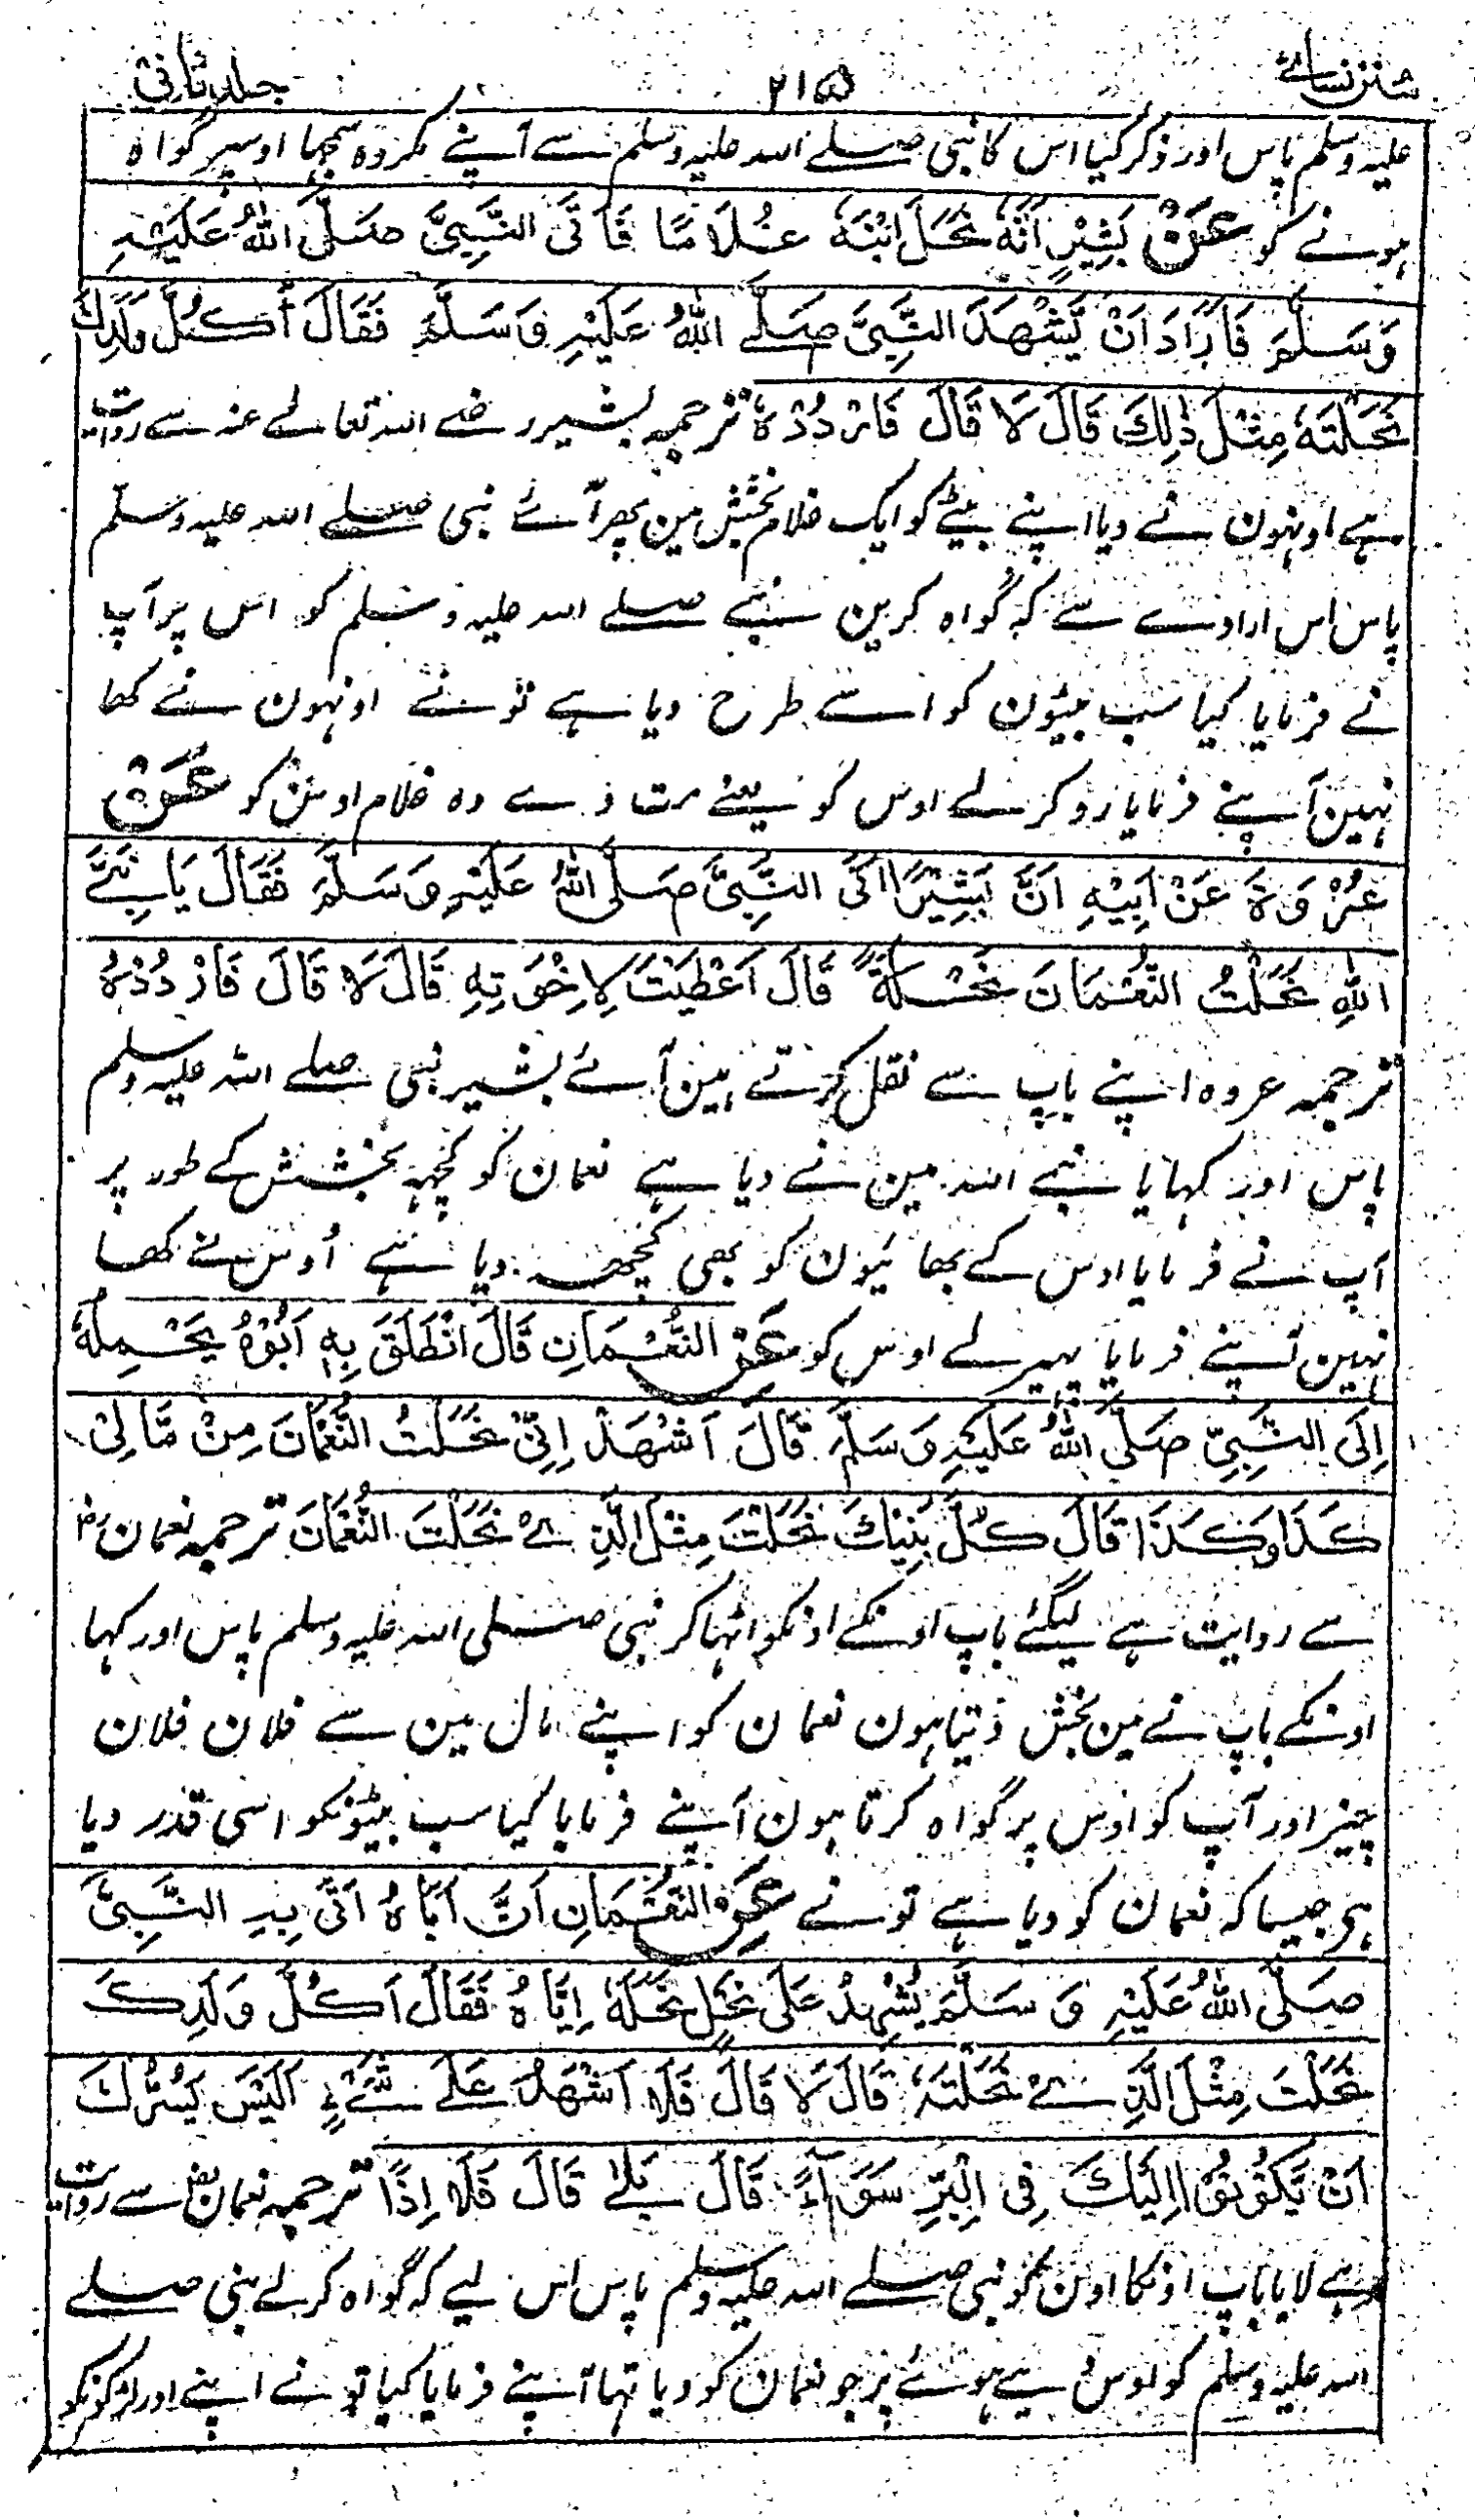 سنن نسائے ۲۱۵ جلد ثانی
علیہ وسلم پاس اور ذکر کیا اس کا نبی صلے اللہ علیہ وسلم سے آپنے مکروہ سمجہا اوسپر گواہ
ہونے کو عَنْ بَشِيْرٍ اَنَّهٗ نَحَلَ ابْنَهٗ غُلَامًا فَاَتَى النَّبِيَّ صَلَّى اللهُ عَلَيْهِ
وَسَلَّمَ فَاَرَادَ اَنْ يُّشْهِدَ النَّبِيَّ صَلَّے اللهُ عَلَيْهِ وَسَلَّمَ فَقَالَ أَكُلَّ وَلَدِكَ
نَحَلْتَهٗ مِثْلَ ذٰلِكَ قَالَ لَا قَالَ فَارْدُدْهُ ترجمہ بشیر رضے اللہ تعالے عنہ سے روایت
ہے اونہون نے دیا اپنے بیٹے کو ایک غلام بخشش مین پھر آئے نبی صلے اللہ علیہ وسلم
پاس اس ارادے سے کہ گواہ کرین نبے صلے اللہ علیہ وسلم کو اس پر آپ
نے فرمایا کیا سب بیٹون کو اسے طرح دیا ہے تو نے اونہون نے کھا
نہین آپنے فرمایا رد کر لے اوس کو یعنے مت دے وہ غلام اوس کو عَنْ
عُرْوَةَ عَنْ اَبِيْهِ اَنَّ بَشِيْرًا اَتَى النَّبِيَّ صَلَّى اللهُ عَلَيْهِ وَسَلَّمَ فَقَالَ يَا نَبِيَّ
اللهِ نَحَلْتُ النُّعْمَانَ نِحْلَةً قَالَ اَعْطَيْتَ لِاِخْوَتِهِ قَالَ لَا قَالَ فَارْدُدْهُ
ترجمہ عروہ اپنے باپ سے نقل کرتے ہین آئے بشیر نبی صلے اللہ علیہ وسلم
پاس اور کہا یا نبے اللہ مین نے دیا ہے نعمان کو کچہہ بخشش کے طور پر
آپ نے فرمایا اوس کے بھائیون کو بھی کچھ دیا ہے اُوس نے کھا
نہین آپنے فرمایا پہیر لے اوس کو عَنِ النُّعْمَانِ قَالَ انْطَلَقَ بِهِ اَبُوْهُ يَحْمِلُهٗ
اِلَى النَّبِيِّ صَلَّى اللهُ عَلَيْهِ وَسَلَّمَ قَالَ اَشْهَدْ اِنِّيْ نَحَلْتُ النُّعْمَانَ مِنْ مَّالِىْ
كَذَا وَكَذَا قَالَ كُلَّ بَنِيْكَ نَحَلْتَ مِثْلَ الَّذِيْ نَحَلْتَ النُّعْمَانَ ترجمہ نعمان رض
سے روایت ہے لیگئے باپ اونکے اونکو اٹہا کر نبی صلی اللہ علیہ وسلم پاس اور کہا
اونکے باپ نے مین بخش دیتا ہون نعمان کو اپنے مال مین سے فلان فلان
چیز اور آپ کو اوس پر گواہ کرتا ہون آپنے فرمایا کیا سب بیٹونکو اسی قدر دیا
ہی جیسا کہ نعمان کو دیا ہے تو نے عَنِ النُّعْمَانِ اَنَّ اَبَاهُ اَتٰى بِهِ النَّبِيَّ
صَلَّى اللهُ عَلَيْهِ وَسَلَّمَ يُشْهِدُ عَلٰى نَحْلٍ نَحَلَهٗ اِيَّاهُ فَقَالَ اَكُلَّ وَلَدِكَ
نَحَلْتَ مِثْلَ الَّذِيْ نَحَلْتَهٗ قَالَ لَا قَالَ فَلَا اَشْهَدُ عَلٰے شَيْءٍ اَلَيْسَ يَسُرُّكَ
اَنْ يَّكُوْنُوْا اِلَيْكَ فِى الْبِرِّ سَوَآءً قَالَ بَلٰى قَالَ فَلَا اِذًا ترجمہ نعمان رض سے روایت
ہے لایا باپ اونکا اون کو نبی صلے اللہ علیہ وسلم پاس اس لیے کہ گواہ کرلے نبی صلے
اللہ علیہ وسلم کو اوس دیے ہوئے پر جو نعمان کو دیا تہا آپنے فرمایا کیا تو نے اپنے اور لڑکونکو